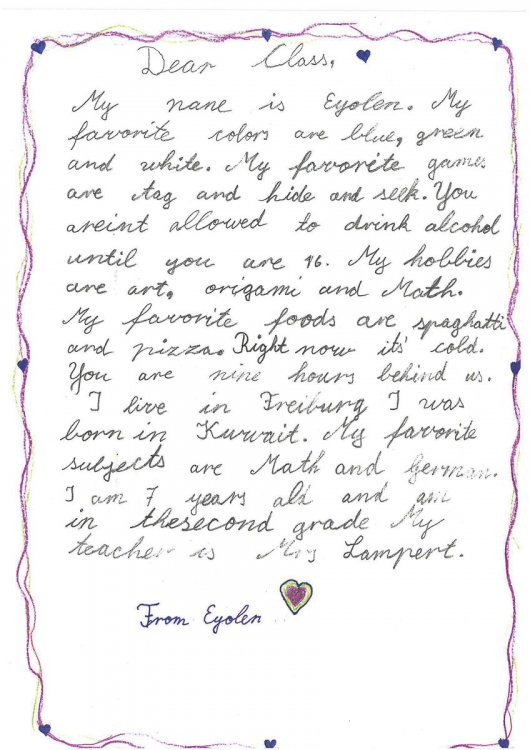 Dear Class,
My nane is Eyolen. My
favorite colors are blue, green
and white. My favorite games
are tag and hide and seek. You
areint allowed to drink alcohol
until you are 16. My hobbies
are art, origami and Math.
My favorite foods are spaghatti
and pizza. Right now its' cold.
You are nine hours behind us.
I live in Freiburg I was
born in Kuwait. My favorite
subjects are Math and German.
I am 7 years old and am
in thesecond grade My
teacher is Mrs Lampert.
From Eyolen